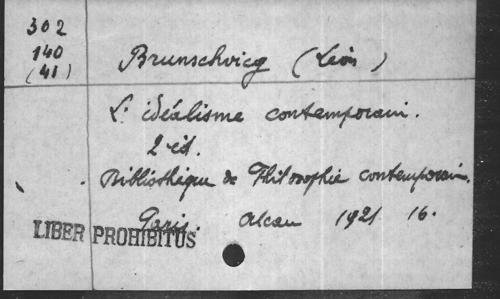 302
140
(41)
Brunschvicg (Léon)
L'idéalisme contemporain.
2 éd.
Bibliothèque de Philosophie contemporain.
Paris. Alcan 1921 16.
LIBER PROHIBITUS